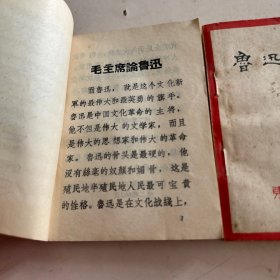 毛主席論魯迅
而魯迅，就是这个文化新
軍的最伟大和最英勇的旗手。
魯迅是中国文化革命的主将，
他不但是伟大的文学家，而且
是伟大的思想家和伟大的革命
家。魯迅的骨头是最硬的，他
沒有絲毫的奴顏和媚骨，这是
殖民地半殖民地人民最可宝貴
的性格。魯迅是在文化战綫上，
魯迅